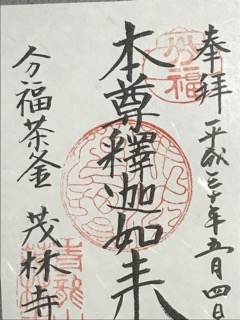 奉拝 平成三十年五月四日
分福
本尊釋迦如来
分福茶釜 茂林寺